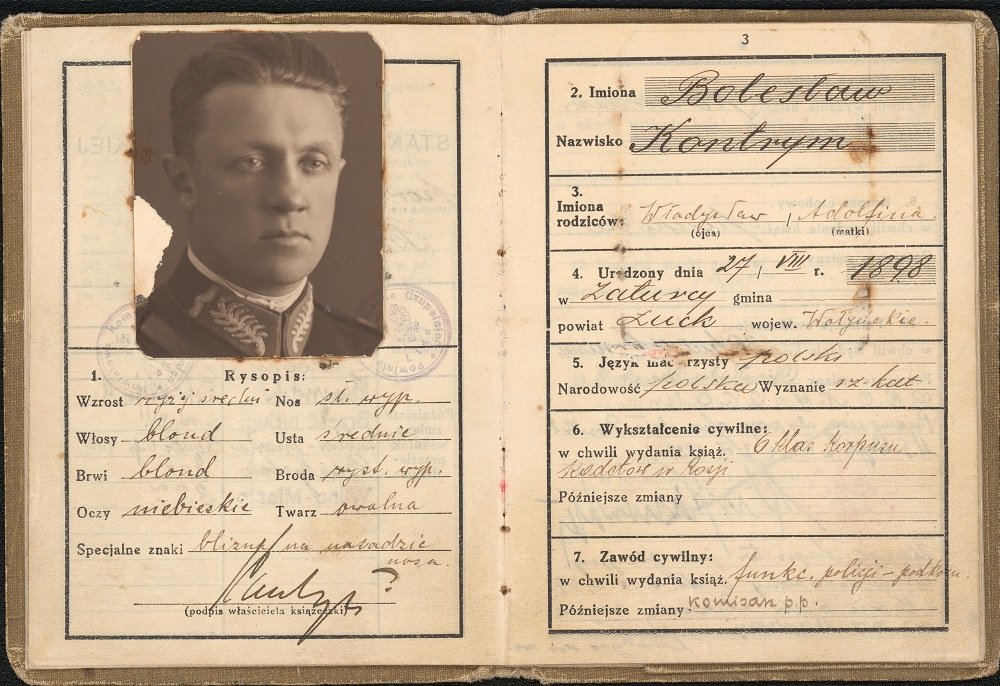 1. Rysopis:
Wzrost wyżej średni Nos śr. wyp.
Włosy blond Usta średnie
Brwi blond Broda wyst. wyp.
Oczy niebieskie Twarz owalna
Specjalne znaki blizna na nasadzie
nosa.
(podpis właściciela książeczki)
3
2. Imiona Bolesław
Nazwisko Kontrym
3.
Imiona
rodziców: Władysław, Adolfina
(ojca) (matki)
4. Urodzony dnia 27, VIII r. 1898
w Zaturcy gmina
powiat Łuck wojew. Wołyńskie-
5. Język mac rzysty polski
Narodowość polska Wyznanie rz-kat
6. Wykształcenie cywilne:
w chwili wydania książ. 6 klas Korpusu
Kadetów w Rosji
Późniejsze zmiany
7. Zawód cywilny:
w chwili wydania książ. funkc. policji-podkom.
Późniejsze zmiany komisarz p.p.